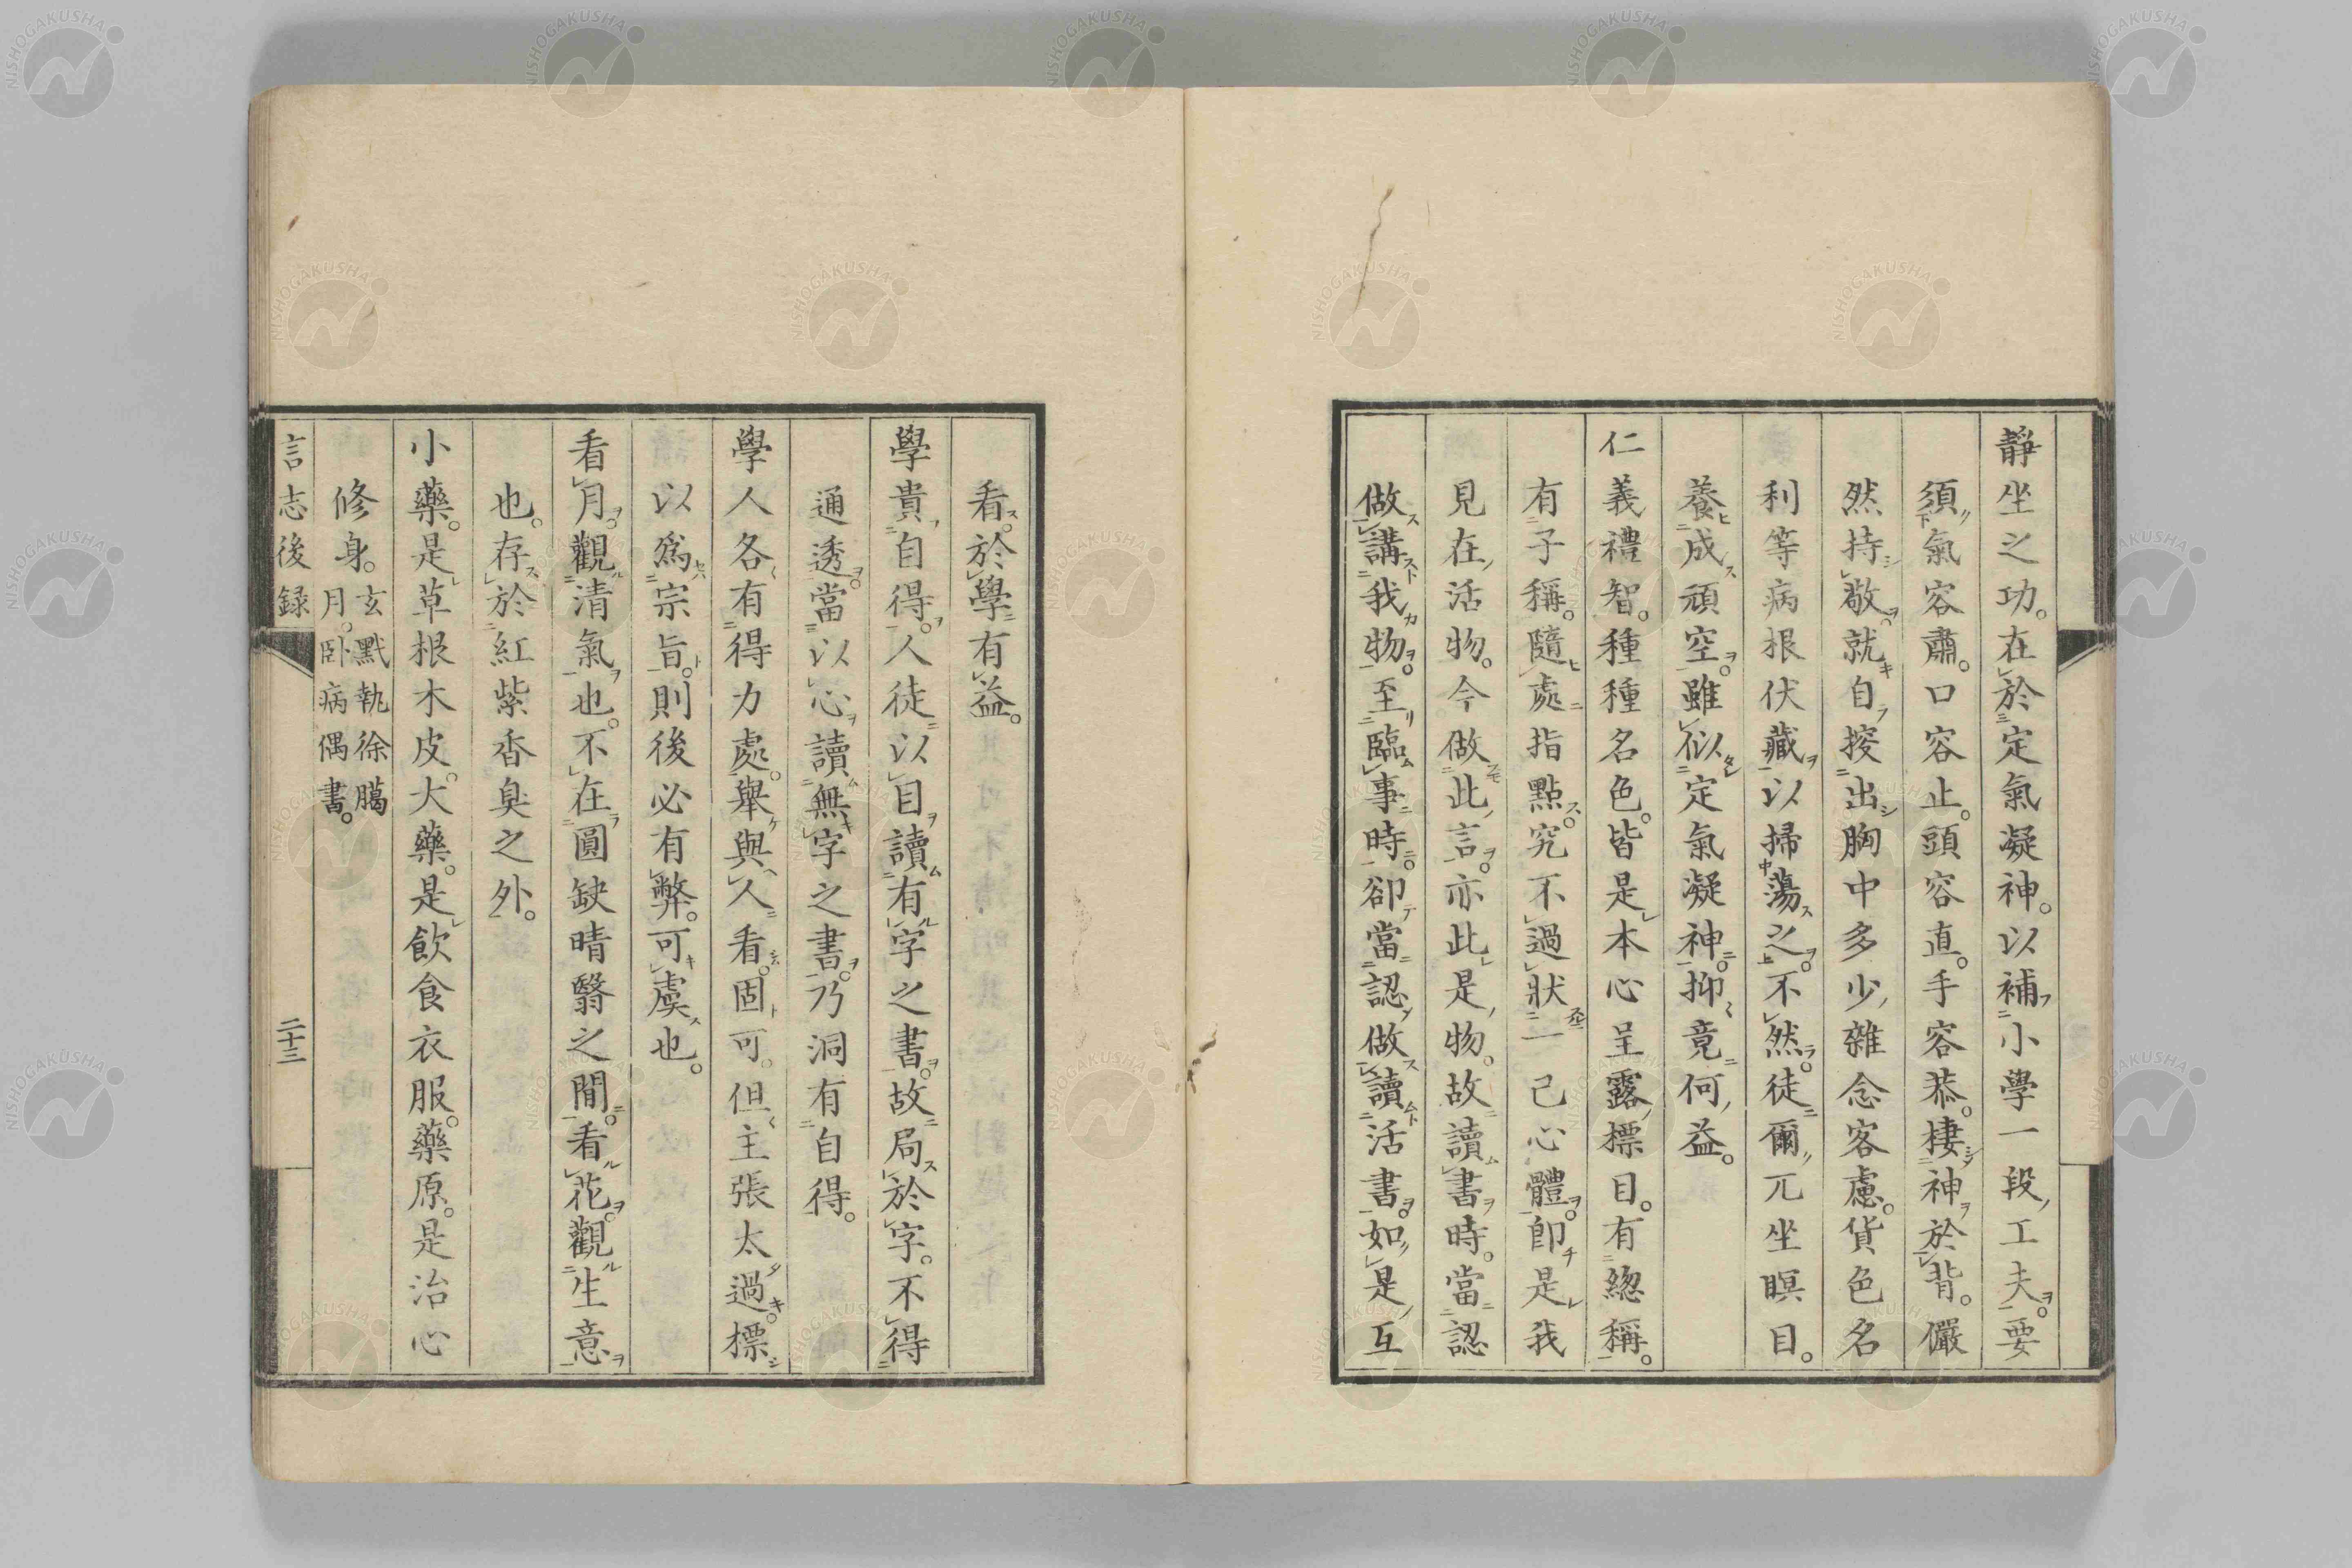 靜坐之功。在於定氣凝神。以補小學一段工夫。要
須氣容肅。口容止。頭容直。手容恭。棲神於背。儼
然持敬。就自挍出胸中多少雜念客慮。貨色名
利等病根伏藏。以掃蕩之。不然。徒爾兀坐瞑目。
養成頑空。雖似定氣凝神。抑竟何益。
仁義禮智。種種名色。皆是本心呈露標目。有緫稱。
有子稱。隨處指點。究不過狀一己心體。卽是我
見在活物。今做此言。亦此是物。故讀書時。當認
做講我物。至臨事時。卻當認做讀活書。如是互
看。於學有益。
學貴自得。人徒以目讀有字之書。故局於字。不得
通透。當以心讀無字之書。乃洞有自得。
學人各有得力處。舉與人看。固可。但主張太過。標
以爲宗旨。則後必有弊。可虞也。
看月。觀清氣也。不在圓缺晴翳之間。看花。觀生意
也。存於紅紫香臭之外。
小藥。是草根木皮。大藥。是飲食衣服。藥原。是治心
修身。玄黓執徐臈月。臥病偶書。
言志後録
二十三
NISHOGAKUSHA